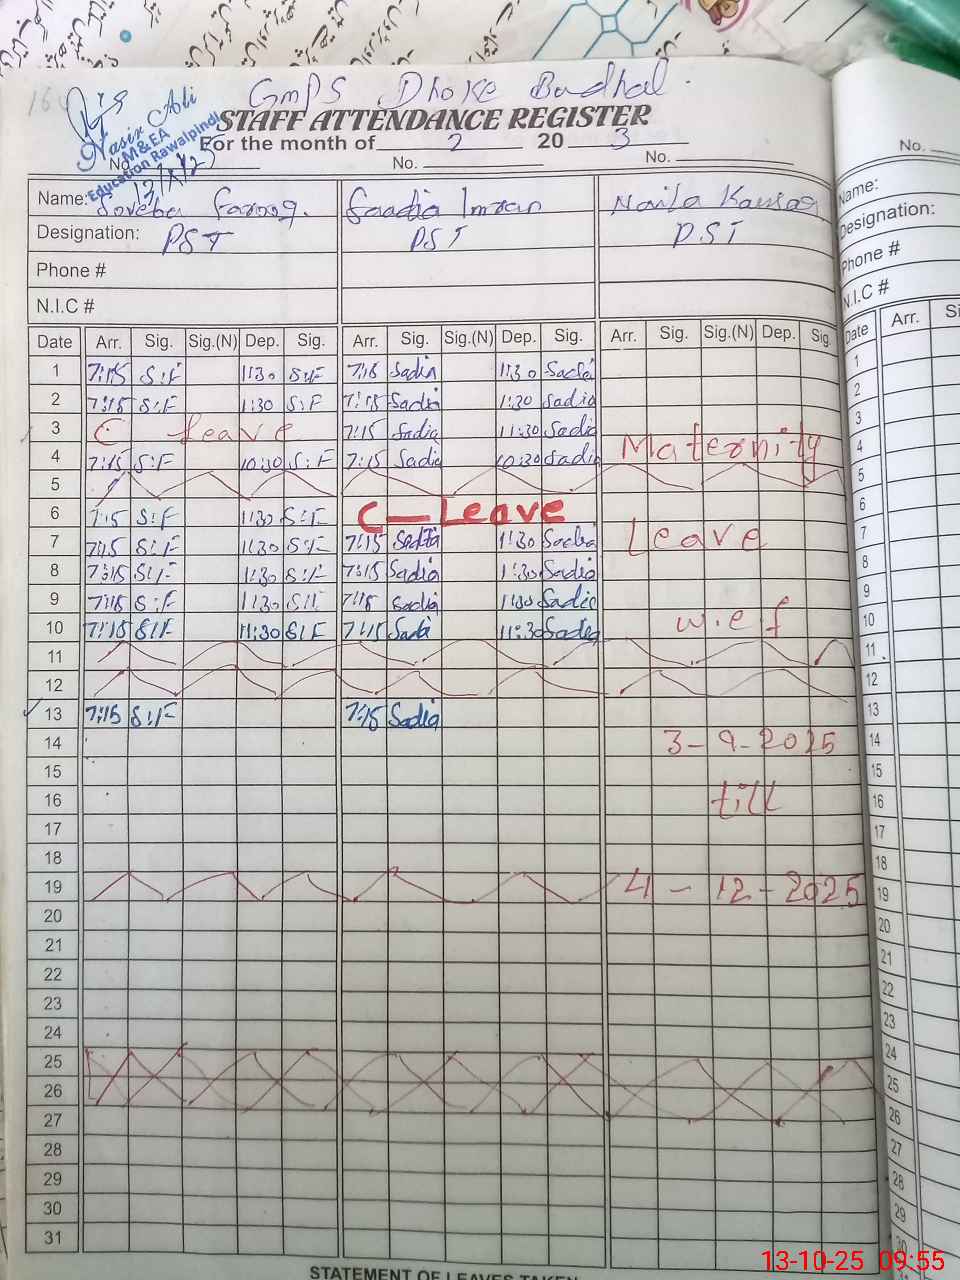 GMPS Dhoke Budhal.
STAFF ATTENDANCE REGISTER
For the month of 2 20 3
Nasir Ali
M&EA
Education Rawalpindi
No. No. No.
Name: Soveba Farooq. Saadia Imran Naila Kausar
Designation: PST PST P.ST
Phone #
N.I.C #
Date Arr. Sig. Sig.(N) Dep. Sig. Arr. Sig. Sig.(N) Dep. Sig. Arr. Sig. Sig.(N) Dep. Sig.
1 7:15 S:F 1:30 S:F 7:15 Sadia 1:30 Sadia
2 7:15 S:F 1:30 S:F 7:15 Sadia 1:30 Sadia
3 C Leave 7:15 Sadia 11:30 Sadia
4 7:15 S:F 10:30 S:F 7:15 Sadia 10:30 Sadia Maternity
5
6 7:15 S:F 11:30 S:F C-Leave
7 7:15 S:F 11:30 S:F 7:15 Sadia 1:30 Sadia Leave
8 7:15 S:F 1:30 S:F 7:15 Sadia 1:30 Sadia
9 7:15 S:F 11:30 S:F 7:15 Sadia 11:30 Sadia
10 7:15 S:F 11:30 S:F 7:15 Sadia 11:30 Sadia w.e.f
11
12
13 7:15 S:F 7:15 Sadia
14 3-9-2025
15
16 till
17
18
19 4-12-2025
20
21
22
23
24
25
26
27
28
29
30
31
STATEMENT OF LEAVES TAKEN
No.
Name:
Designation:
Phone #
N.I.C #
Date Arr.
1
2
3
4
5
6
7
8
9
10
11
12
13
14
15
16
17
18
19
20
21
22
23
24
25
26
27
28
29
30
13-10-25 09:55